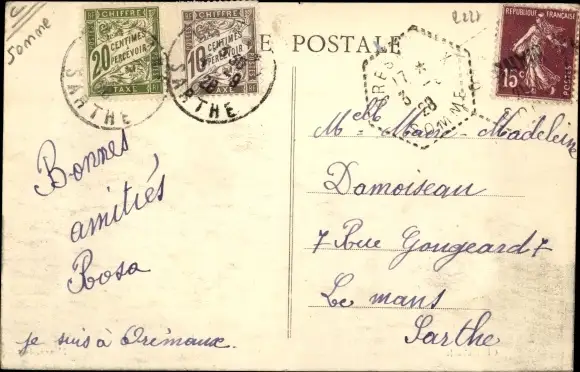 Somme
2228
CHIFFRE
20 CENTIMES
À PERCEVOIR
TAXE
CHIFFRE
10 CENTIMES
À PERCEVOIR
TAXE
SARTHE
SARTHE
E POSTALE
17 *
3
28
SOMME
REPUBLIQUE FRANÇAISE
15c
POSTES
Bonnes
amitiés
Rosa
je suis à Orémaux.
Melle Marie-Madeleine
Damoiseau
7 Rue Gougeard 7
Le mans
Sarthe